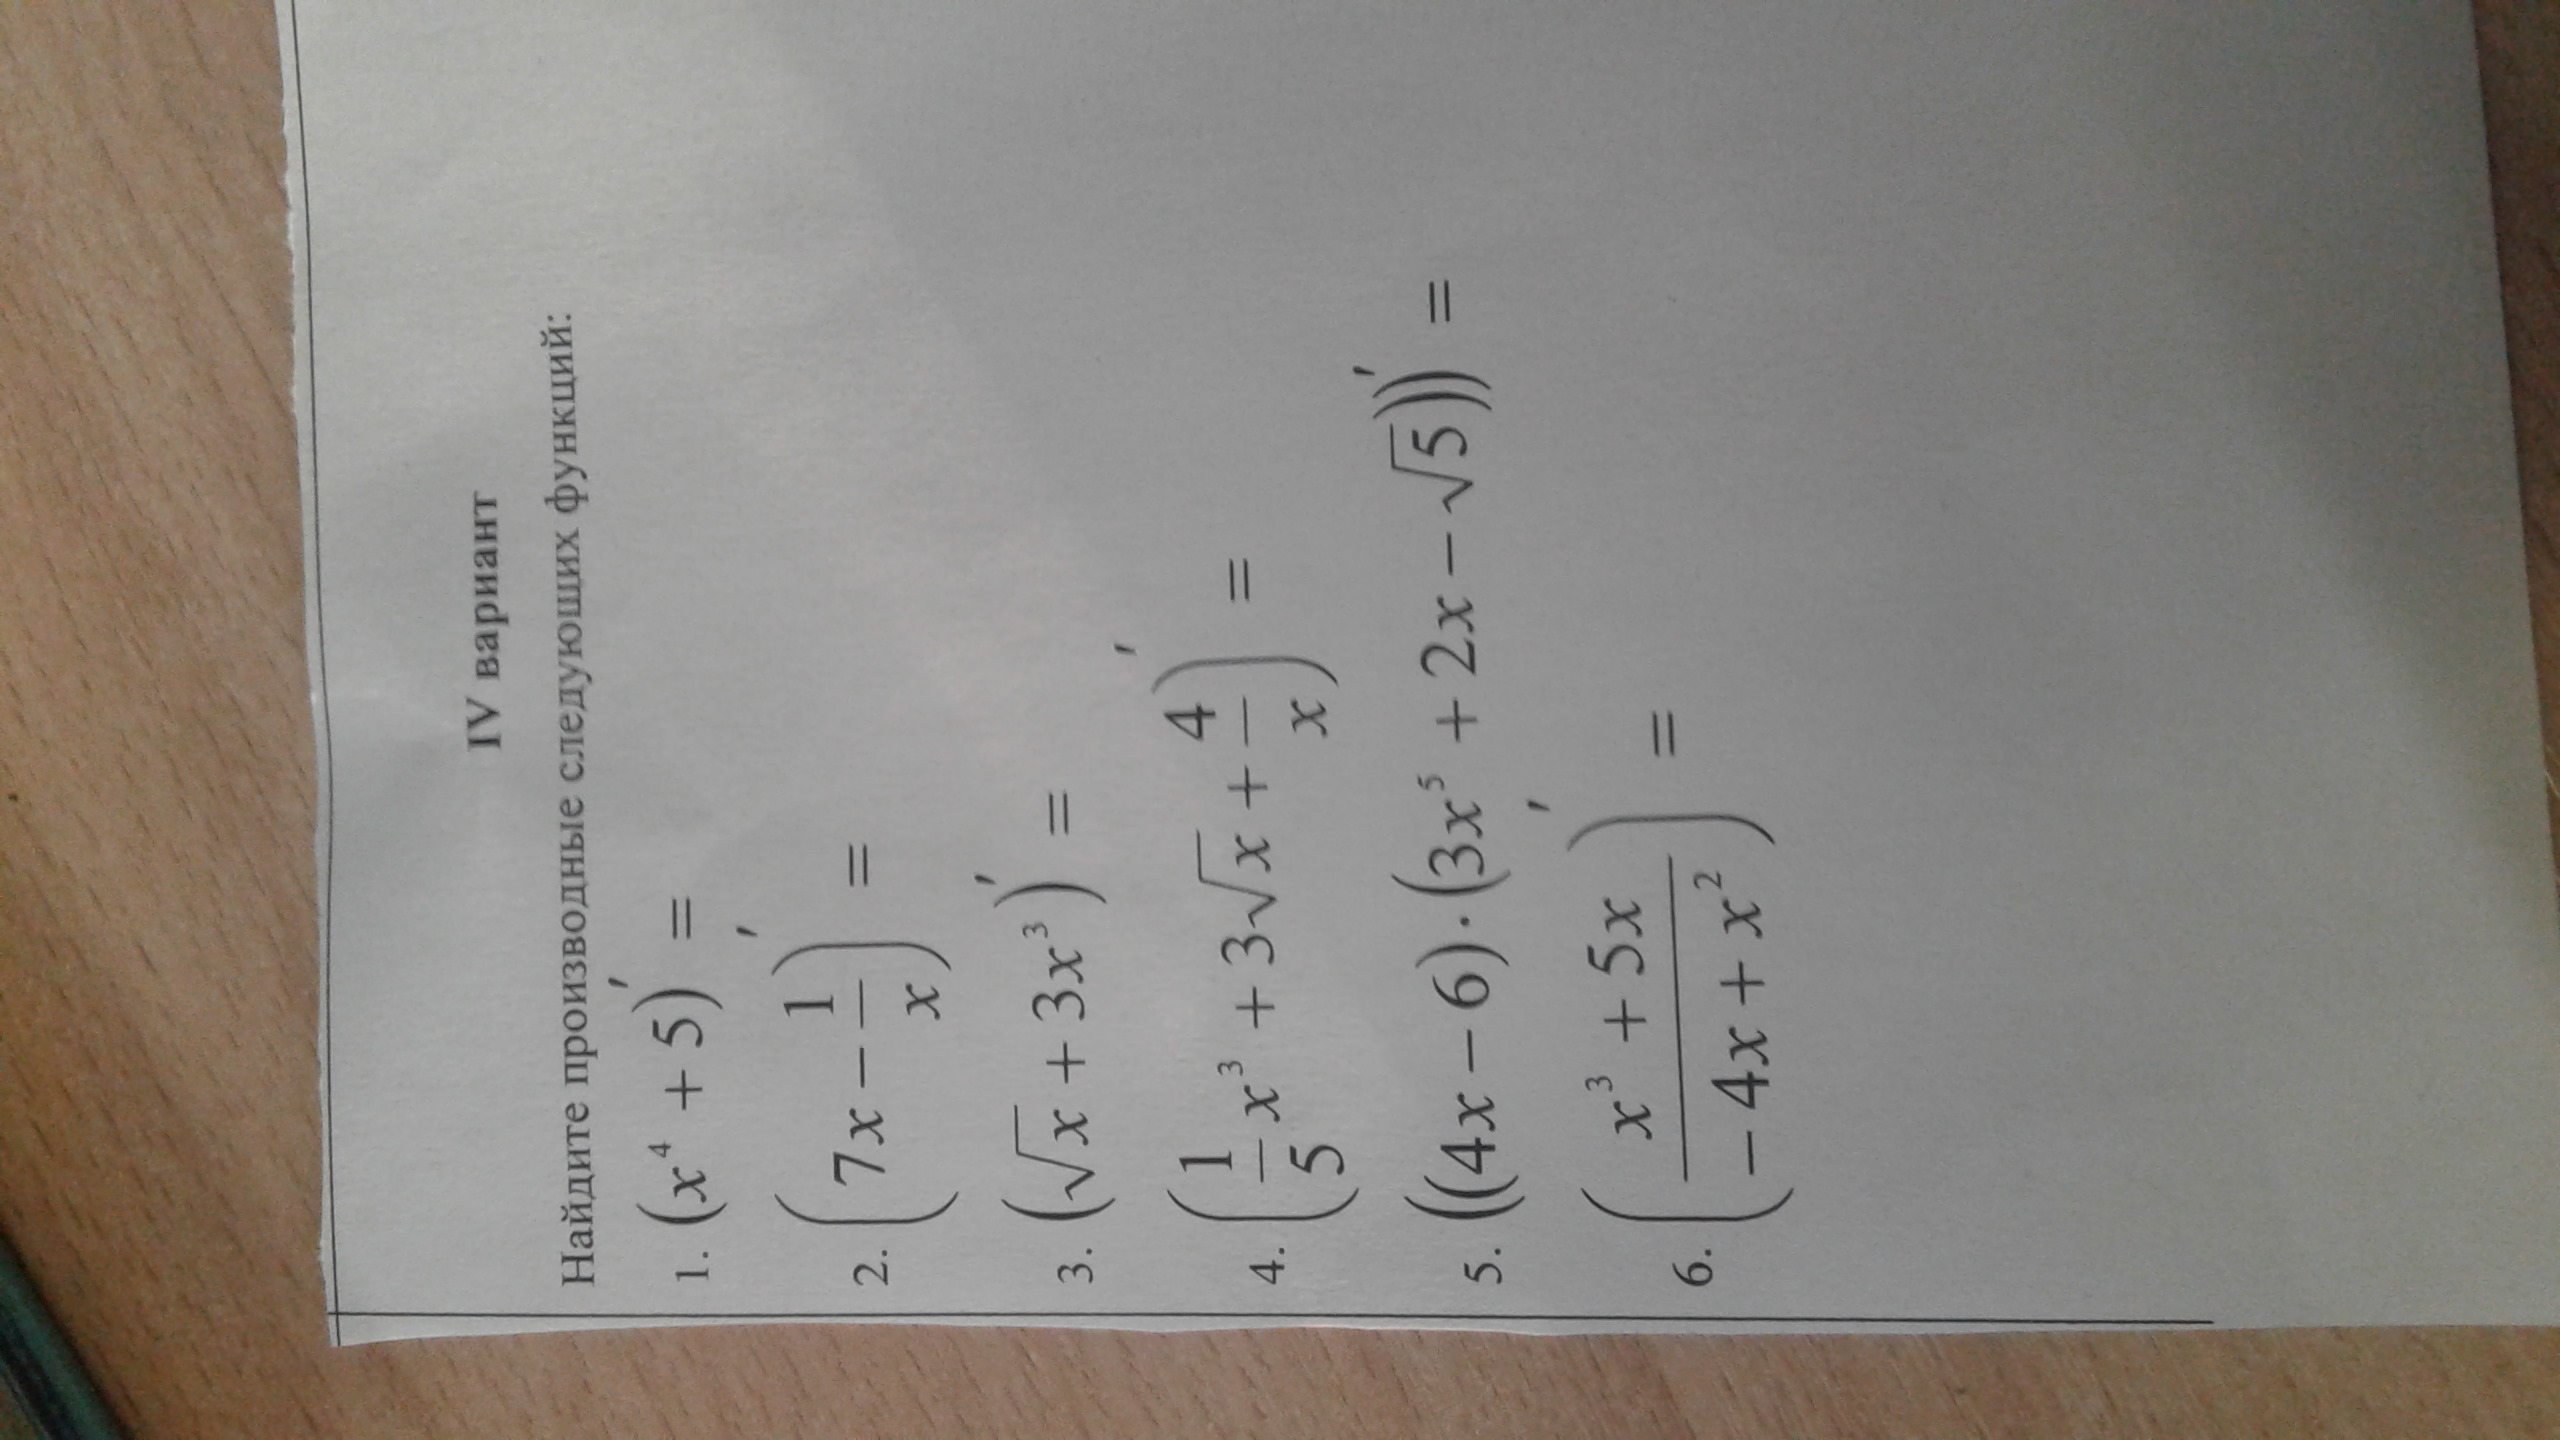 IV вариант
Найдите производные следующих функций:
1. (x⁴ + 5)′ =
2. (7x − 1/x)′ =
3. (√x + 3x³)′ =
4. (1/5 x³ + 3√x + 4/x)′ =
5. ((4x − 6)·(3x⁵ + 2x − √5))′ =
6. ((x³ + 5x)/(−4x + x²))′ =